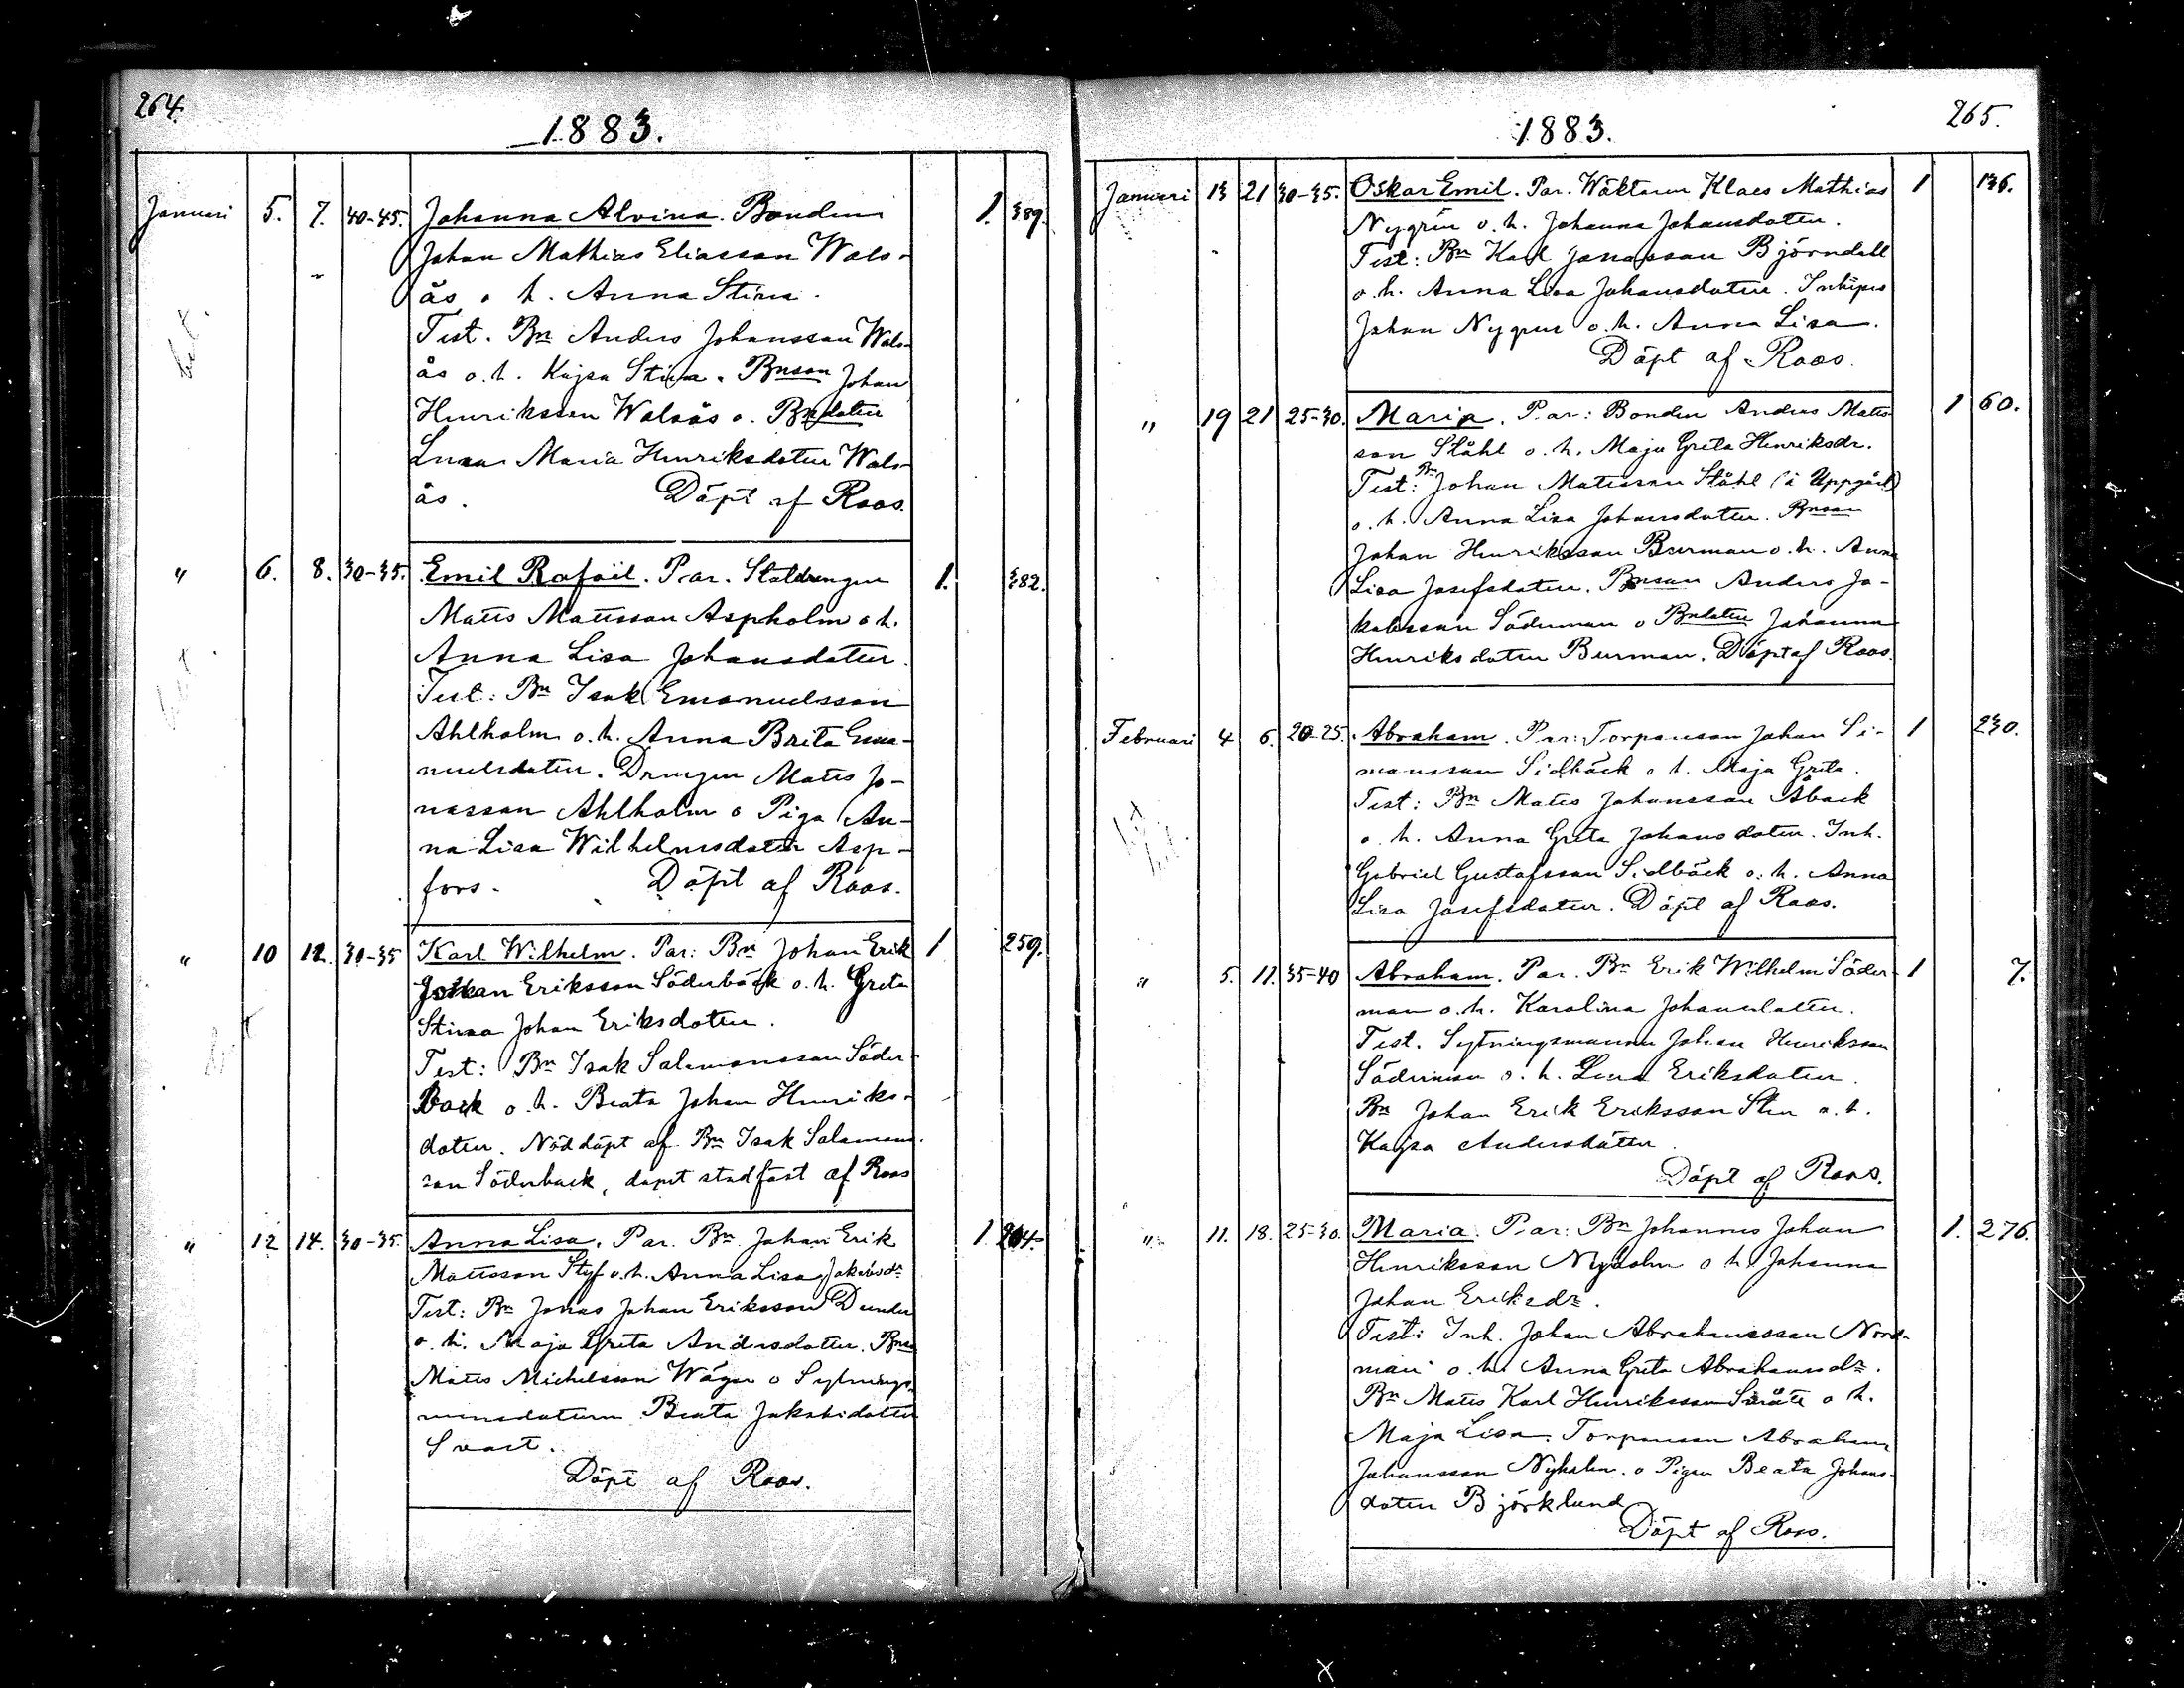 264.
1883.
Januari 5. 7. 40-45. Johanna Alvina. Bonden 1. 389.
Johan Mathias Eliasson Wals-
ås o h. Anna Stina.
Test. Bn Anders Johansson Wals-
ås o. h. Kajsa Stina. Bnson Johan
Henriksson Walsås o. Bndotter
Maria Henriksdotter Wals-
ås. Döpt af Roos.
" 6. 8. 30-35. Emil Rafaël. Par. Stataldrengen 1. 382.
Matts Mattsson Aspholm o h.
Anna Lisa Johansdotter.
Test: Bn Isak Emanuelsson
Ahlholm o. h. Anna Brita Ema-
nuelsdotter. Drengen Matts Jo-
nasson Ahlholm o Piga An-
na Lisa Wilhelmsdotter Asp-
fors. Döpt af Roos.
" 10 12. 30-35 Karl Wilhelm. Par: Bn Johan Erik 1 259.
Johan Eriksson Söderbäck o. h. Greta
Stina Johan Eriksdotter.
Test: Bn Isak Salomonsson Söder-
back o. h. Beata Johan Henriks-
dotter. Nöddöpt af Bn Isak Salomons-
son Söderback, dopet stadfäst af Roos
" 12 14. 30-35. Anna Lisa. Par. Bn Johan Erik 1 204.
Mattsson Styf o. h. Anna Lisa Jakobsdr
Test: Bn Jonas Johan Eriksson Dunder
o. h. Maja Greta Andersdotter. Bnson
Matts Michelsson Wägar o Sytnings-
mansdottern Beata Jakobsdotter
Svart.
Döpt af Roos.
265.
1883.
Januari 13 21 30-35. Oskar Emil. Par. Wäktaren Klaes Mathias 1 136.
Nygrén o. h. Johanna Johansdotter.
Test: Bn Karl Jonasson Björndahl
o. h. Anna Lisa Johansdotter. Inhyses
Johan Nygren o. h. Anna Lisa.
Döpt af Roos.
" 19 21 25-30. Maria. Par: Bonden Anders Matts- 1 60.
son Ståhl o. h. Maja Greta Henriksdr.
Test: Bn Johan Mattsson Ståhl (å Uppgård)
o. h. Anna Lisa Johansdotter. Bnson
Johan Henriksson Burman o. h. Anna
Lisa Josefsdotter. Bnson Anders Ja-
kobsson Söderman o Bndotter Johanna
Henriksdotter Burman. Döpt af Roos.
Februari 4 6. 20-25. Abraham. Par: Torparson Johan Si- 1 230.
monsson Sidbäck o h. Maja Greta.
Test: Bn Matts Johansson Åback
o. h. Anna Greta Johansdotter. Inh.
Gabriel Gustafsson Sidbäck o. h. Anna
Lisa Josefsdotter. Döpt af Roos.
" 5. 11. 35-40 Abraham. Par. Bn Erik Wilhelm Söder- 1 7.
man o. h. Karolina Johansdotter.
Test. Sytningsmannen Johan Henriksson
Söderman o. h. Lena Eriksdotter.
Bn Johan Erik Eriksson Sten o. h.
Kajsa Andersdotter.
Döpt af Roos.
" 11. 18. 25-30. Maria. Par: Bn Johannes Johan 1. 276.
Henriksson Nyholm o h Johanna
Johan Eriksdr.
Test: Inh. Johan Abrahamsson Nord-
man o. h. Anna Greta Abrahamsdr.
Bn Matts Karl Henriksson o h.
Maja Lisa. Torparson Abraham
Johansson Nyholm. o Pigan Beata Johans-
dotter Björklund
Döpt af Roos.